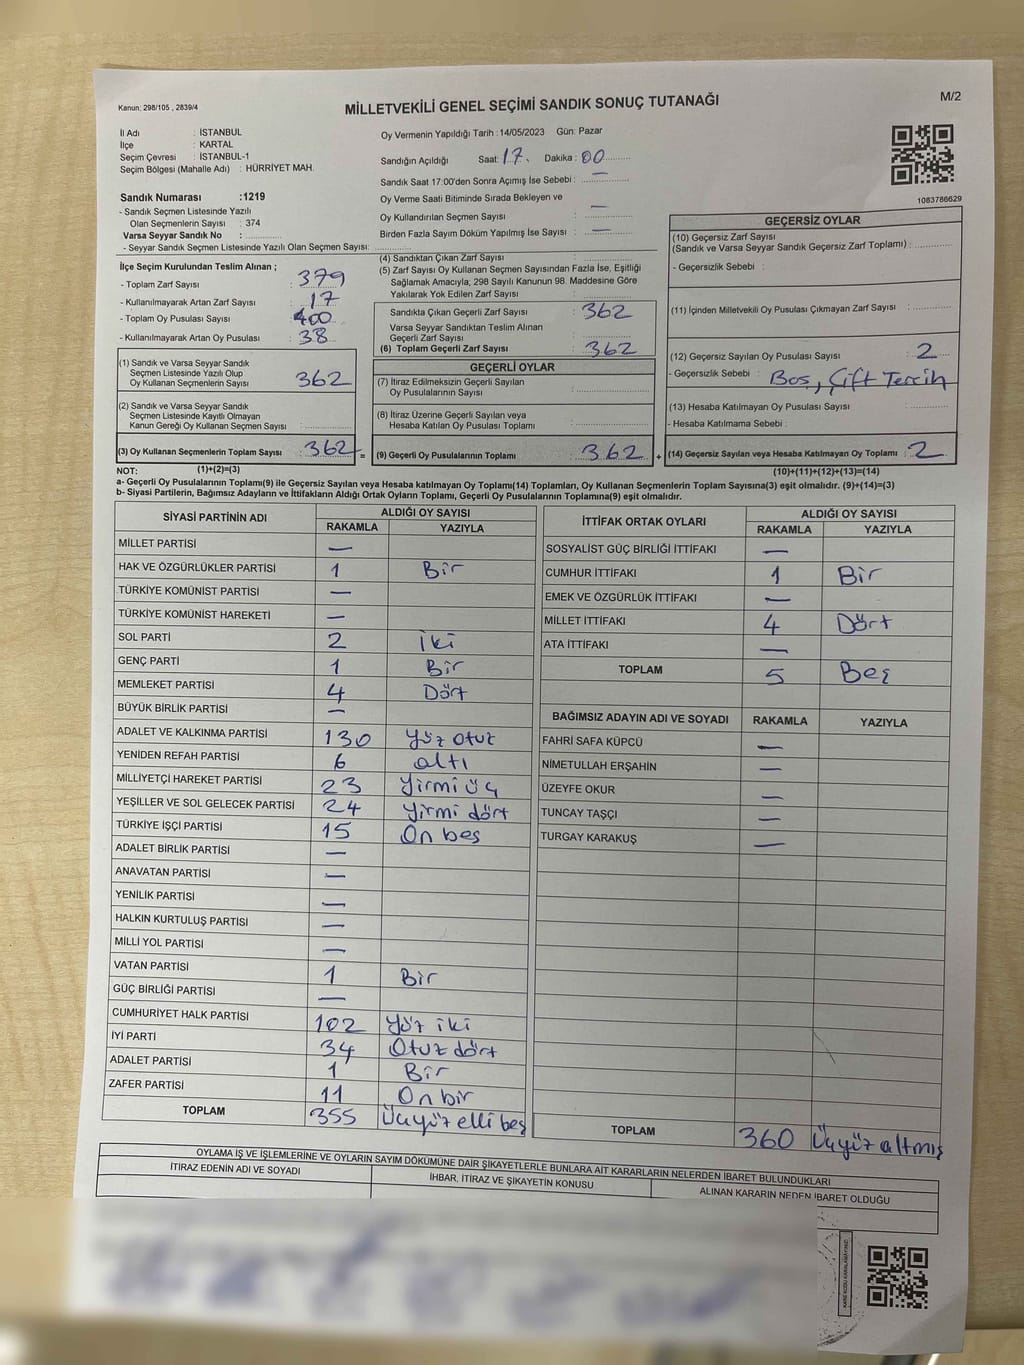 Kanun: 298/105 , 2839/4
MİLLETVEKİLİ GENEL SEÇİMİ SANDIK SONUÇ TUTANAĞI
M/2
İl Adı : İSTANBUL
İlçe : KARTAL
Seçim Çevresi : İSTANBUL-1
Seçim Bölgesi (Mahalle Adı) : HÜRRİYET MAH.
Sandık Numarası :1219
- Sandık Seçmen Listesinde Yazılı
Olan Seçmenlerin Sayısı : 374
Varsa Seyyar Sandık No :
- Seyyar Sandık Seçmen Listesinde Yazılı Olan Seçmen Sayısı:
Oy Vermenin Yapıldığı Tarih :14/05/2023 Gün: Pazar
Sandığın Açıldığı Saat: 17. Dakika : 00
Sandık Saat 17:00'den Sonra Açımış İse Sebebi : —
Oy Verme Saati Bitiminde Sırada Bekleyen ve
Oy Kullandırılan Seçmen Sayısı : —
Birden Fazla Sayım Döküm Yapılmış İse Sayısı : —
1083786629
İlçe Seçim Kurulundan Teslim Alınan ;
- Toplam Zarf Sayısı : 379
- Kullanılmayarak Artan Zarf Sayısı : 17
- Toplam Oy Pusulası Sayısı : 400
- Kullanılmayarak Artan Oy Pusulası : 38
(1) Sandık ve Varsa Seyyar Sandık
Seçmen Listesinde Yazılı Olup
Oy Kullanan Seçmenlerin Sayısı : 362
(2) Sandık ve Varsa Seyyar Sandık
Seçmen Listesinde Kayıtlı Olmayan
Kanun Gereği Oy Kullanan Seçmen Sayısı :
(3) Oy Kullanan Seçmenlerin Toplam Sayısı : 362 =
(4) Sandıktan Çıkan Zarf Sayısı :
(5) Zarf Sayısı Oy Kullanan Seçmen Sayısından Fazla İse, Eşitliği
Sağlamak Amacıyla, 298 Sayılı Kanunun 98. Maddesine Göre
Yakılarak Yok Edilen Zarf Sayısı :
Sandıkta Çıkan Geçerli Zarf Sayısı : 362
Varsa Seyyar Sandıktan Teslim Alınan
Geçerli Zarf Sayısı :
(6) Toplam Geçerli Zarf Sayısı : 362
GEÇERLİ OYLAR
(7) İtiraz Edilmeksizin Geçerli Sayılan
Oy Pusulalarının Sayısı :
(8) İtiraz Üzerine Geçerli Sayılan veya
Hesaba Katılan Oy Pusulası Toplamı :
(9) Geçerli Oy Pusulalarının Toplamı : 362 +
GEÇERSİZ OYLAR
(10) Geçersiz Zarf Sayısı
(Sandık ve Varsa Seyyar Sandık Geçersiz Zarf Toplamı) :
- Geçersizlik Sebebi :
(11) İçinden Milletvekili Oy Pusulası Çıkmayan Zarf Sayısı :
(12) Geçersiz Sayılan Oy Pusulası Sayısı : 2
- Geçersizlik Sebebi : Boş, Çift Tercih
(13) Hesaba Katılmayan Oy Pusulası Sayısı :
- Hesaba Katılmama Sebebi :
(14) Geçersiz Sayılan veya Hesaba Katılmayan Oy Toplamı : 2
NOT: (1)+(2)=(3)
(10)+(11)+(12)+(13)=(14)
a- Geçerli Oy Pusulalarının Toplamı(9) ile Geçersiz Sayılan veya Hesaba katılmayan Oy Toplamı(14) Toplamları, Oy Kullanan Seçmenlerin Toplam Sayısına(3) eşit olmalıdır. (9)+(14)=(3)
b- Siyasi Partilerin, Bağımsız Adayların ve İttifakların Aldığı Ortak Oyların Toplamı, Geçerli Oy Pusulalarının Toplamına(9) eşit olmalıdır.
SİYASİ PARTİNİN ADI ALDIĞI OY SAYISI
RAKAMLA YAZIYLA
MİLLET PARTİSİ —
HAK VE ÖZGÜRLÜKLER PARTİSİ 1 Bir
TÜRKİYE KOMÜNİST PARTİSİ —
TÜRKİYE KOMÜNİST HAREKETİ —
SOL PARTİ 2 İki
GENÇ PARTİ 1 Bir
MEMLEKET PARTİSİ 4 Dört
BÜYÜK BİRLİK PARTİSİ —
ADALET VE KALKINMA PARTİSİ 130 Yüz otuz
YENİDEN REFAH PARTİSİ 6 altı
MİLLİYETÇİ HAREKET PARTİSİ 23 Yirmi üç
YEŞİLLER VE SOL GELECEK PARTİSİ 24 Yirmi dört
TÜRKİYE İŞÇİ PARTİSİ 15 On beş
ADALET BİRLİK PARTİSİ —
ANAVATAN PARTİSİ —
YENİLİK PARTİSİ —
HALKIN KURTULUŞ PARTİSİ —
MİLLİ YOL PARTİSİ —
VATAN PARTİSİ 1 Bir
GÜÇ BİRLİĞİ PARTİSİ —
CUMHURİYET HALK PARTİSİ 102 Yüz iki
İYİ PARTİ 34 Otuz dört
ADALET PARTİSİ 1 Bir
ZAFER PARTİSİ 11 On bir
TOPLAM 355 Üçyüz elli beş
İTTİFAK ORTAK OYLARI ALDIĞI OY SAYISI
RAKAMLA YAZIYLA
SOSYALİST GÜÇ BİRLİĞİ İTTİFAKI —
CUMHUR İTTİFAKI 1 Bir
EMEK VE ÖZGÜRLÜK İTTİFAKI —
MİLLET İTTİFAKI 4 Dört
ATA İTTİFAKI —
TOPLAM 5 Beş
BAĞIMSIZ ADAYIN ADI VE SOYADI RAKAMLA YAZIYLA
FAHRİ SAFA KÜPCÜ —
NİMETULLAH ERŞAHİN —
ÜZEYFE OKUR —
TUNCAY TAŞÇI —
TURGAY KARAKUŞ —
TOPLAM 360 Üçyüz altmış
OYLAMA İŞ VE İŞLEMLERİNE VE OYLARIN SAYIM DÖKÜMÜNE DAİR ŞİKAYETLERLE BUNLARA AİT KARARLARIN NELERDEN İBARET BULUNDUKLARI
İTİRAZ EDENİN ADI VE SOYADI İHBAR, İTİRAZ VE ŞİKAYETİN KONUSU ALINAN KARARIN NEDEN İBARET OLDUĞU